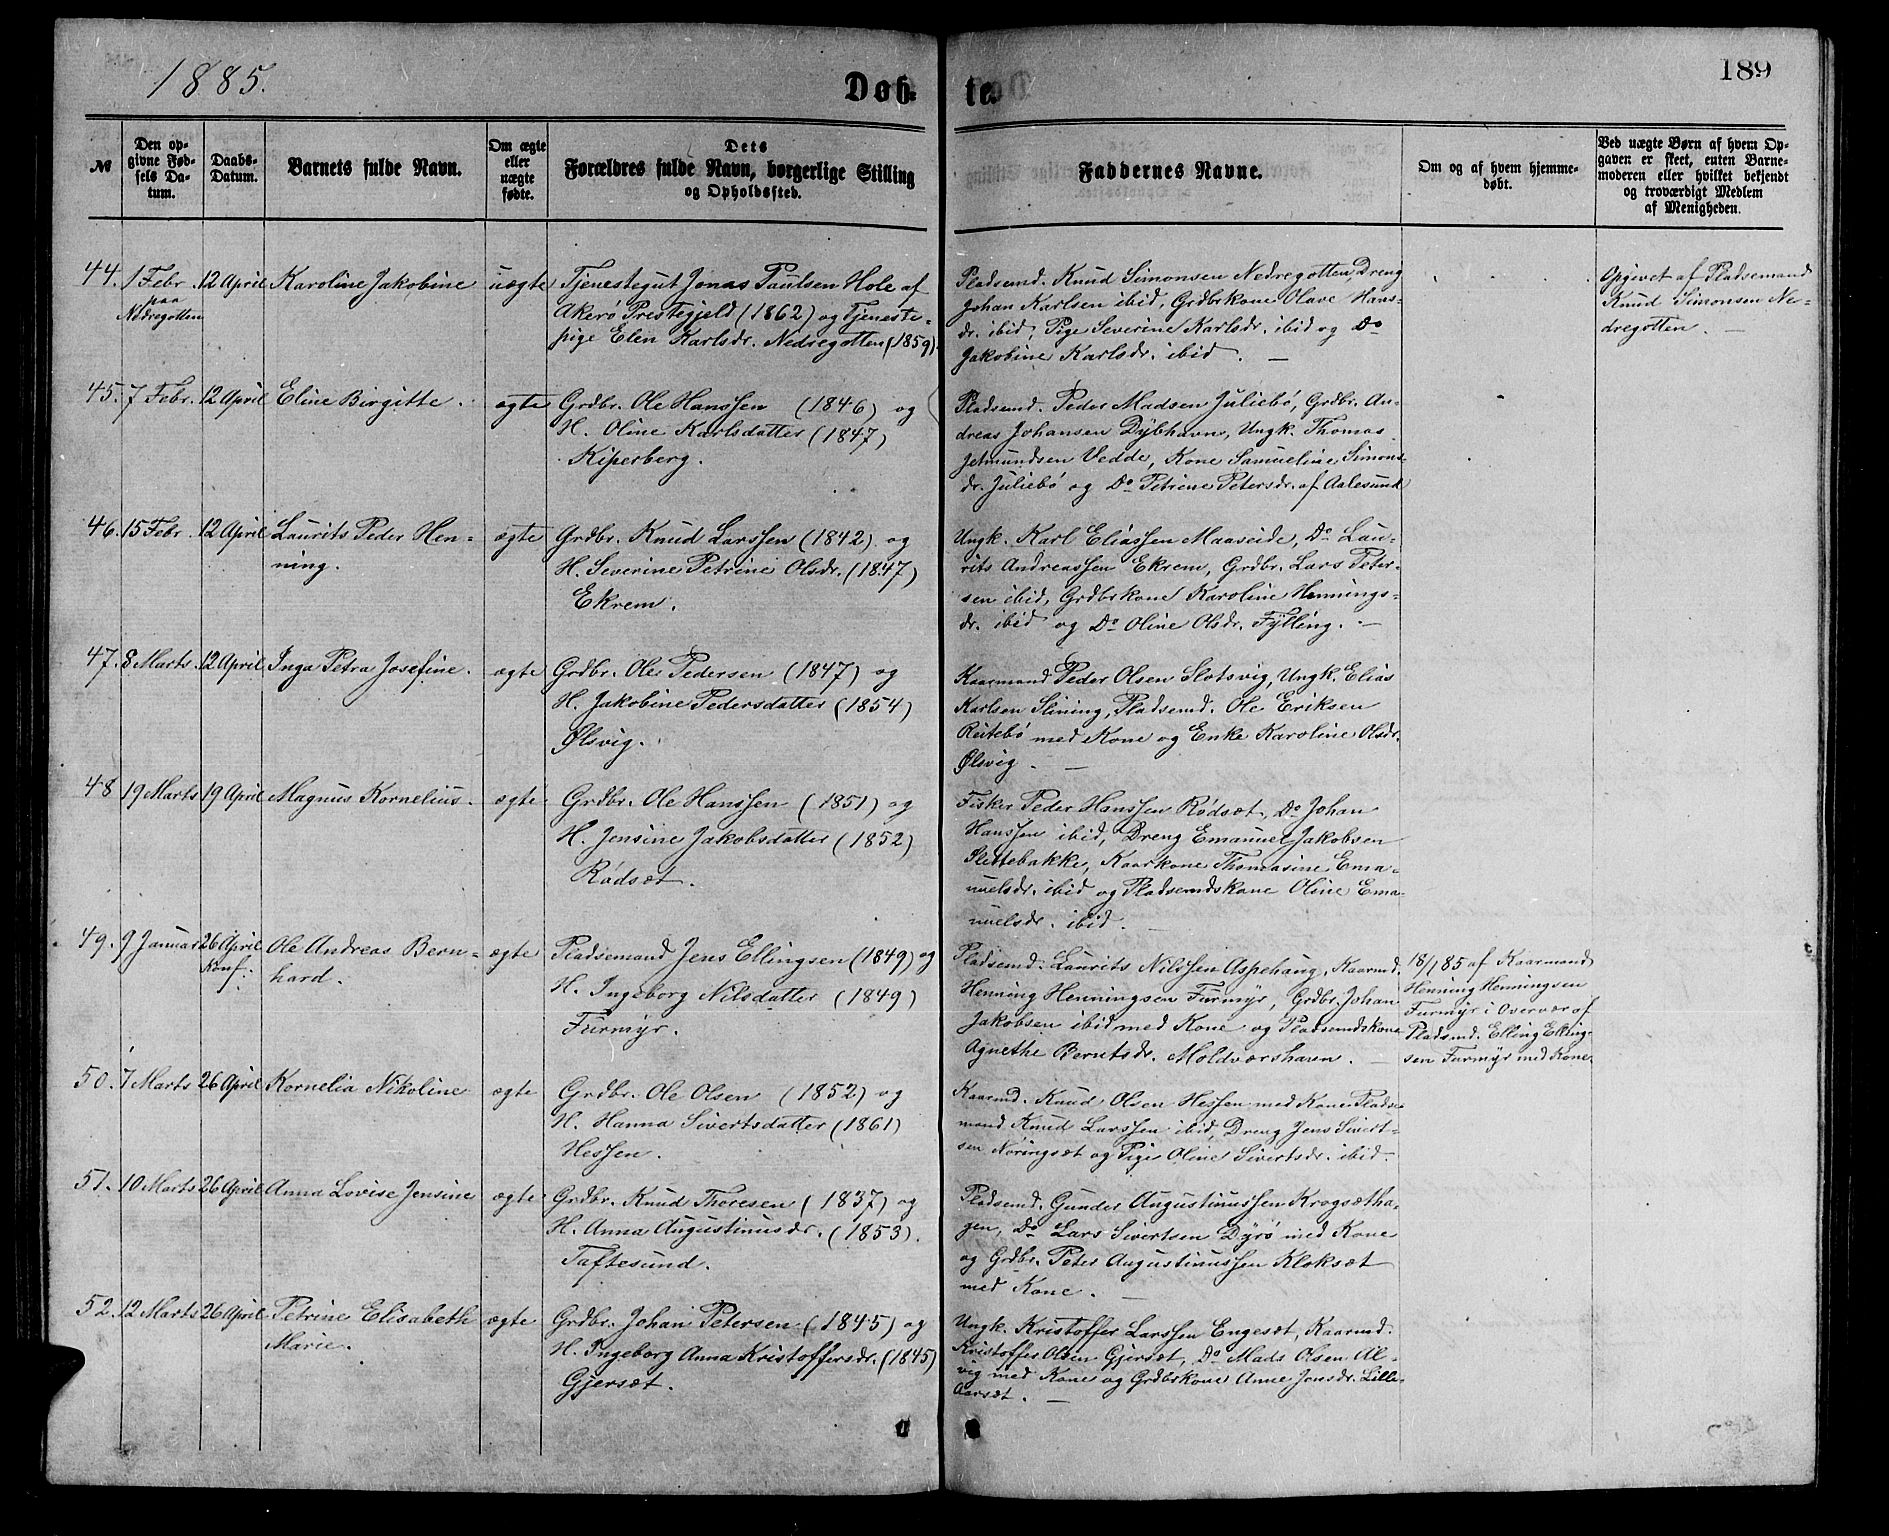 1885.
Døb- te.
189
№
Den opgivne Fødsels Datum.
Daabs-Datum.
Barnets fulde Navn.
Om ægte eller uægte fødte.
Dets Forældres fulde Navn, borgerlige Stilling og Opholdssted.
Faddernes Navne.
Om og af hvem hjemmedøbt.
Ved uægte Børn af hvem Opgaven er skeet, enten Barnemoderen eller hvilket bekjendt og troværdigt Medlem af Menigheden.
44. 1 Febr. paa Nedregotten 12 April Karoline Jakobine uægte
Tjenestegut Jonas Paulsen Hole af
Akerø Prestegjeld (1862) og Tjeneste-
pige Elen Karlsdr. Nedregotten (1859)
Pladsemd. Knud Simonsen Nedregotten, Dreng
Johan Karlsen ibid, Grdbrkone Olave Hans-
dr. ibid, Pige Severine Karlsdr. ibid og Do
Jakobine Karlsdr. ibid. —
Opgivet af Pladsemand
Knud Simonsen Ne-
dregotten. —
45. 7 Febr. 12 April Eline Birgitte. ægte
Grdbr. Ole Hanssen (1846) og
H. Oline Karlsdatter (1847)
Kiperberg.
Pladsemd. Peder Madsen Juliebø, Grdbr. An-
dreas Johansen Dybhavn, Ungk. Thomas
Jetmundsen Vedde, Kone Samueline Simons-
dr. Juliebø og Do Petrine Petersdr. af Aalesund
46. 15 Febr. 12 April Laurits Peder Hen-
ning. ægte
Grdbr. Knud Larssen (1842) og
H. Severine Petrine Olsdr. (1847)
Ekrem.
Ungk. Karl Eliassen Maaseide, Do Lau-
rits Andreassen Ekrem, Grdbr. Lars Peter-
sen ibid, Grdbrkone Karoline Hennings-
dr. ibid og Do Oline Olsdr. Fylling. —
47. 8 Marts 12 April Inga Petra Josefine. ægte
Grdbr. Ole Pedersen (1847) og
H. Jakobine Pedersdatter (1854)
Ølsvig.
Kaarmand Peder Olsen Slotsvig, Ungk. Elias
Karlsen Slining, Pladsemd. Ole Eriksen
Reitebø med Kone og Enke Karoline Olsdr.
Ølsvig. —
48 19 Marts 19 April Magnus Kornelius. ægte
Grdbr. Ole Hanssen (1851) og
H. Jensine Jakobsdatter (1852)
Rødsæt.
Fisker Peder Hanssen Rødsæt, Do Johan
Hanssen ibid, Dreng Emanuel Jakobsen
Slettebakke, Kaarkone Thomasine Ema-
nuelsdr. ibid og Pladsemdskone Oline Ema-
nuelsdr. ibid.
49. 9 Januar 26 April Konf. Ole Andreas Bern-
hard. ægte
Pladsemand Jens Ellingsen (1849) og
H. Ingeborg Nilsdatter (1849)
Furmyr.
Pladsemd. Laurits Nilssen Aspehaug, Kaarmd.
Henning Henningsen Furmyr, Grdbr. Johan
Jakobsen ibid med Kone og Pladsemdskone
Agnethe Berntsdr. Moldværshavn. —
18/1 85 af Kaarmand
Henning Henningsen
Furmyr i Overvær af
Pladsmd. Elling Elling-
sen Furmyr med Kone
50. 7 Marts 26 April Kornelia Nikoline ægte
Grdbr. Ole Olsen (1852) og
H. Hanna Sivertsdatter (1861)
Hessen.
Kaarmd. Knud Olsen Hessen med Kone, Pladse-
mand Knud Larssen ibid, Dreng Jens Sivert-
sen Nøringsæt og Pige Oline Sivertsdr. ibid.
51. 10 Marts 26 April Anna Lovise Jensine ægte
Grdbr. Knud Thoresen (1837) og
H. Anna Augustinusdr. (1853).
Taftesund.
Pladsemd. Gunder Augustinussen Krogsætha-
gen, Do Lars Sivertsen Dyrø med Kone
og Grdbr. Peter Augustinussen Kloksæt
med Kone. —
52. 12 Marts 26 April Petrine Elisabeth
Marie. ægte
Grdbr. Johan Petersen (1845) og
H. Ingeborg Anna Kristoffersdr. (1845)
Gjersæt.
Ungk. Kristoffer Larssen Engesæt, Kaarmd.
Kristoffer Olsen Gjersæt, Do Mads Olsen Al-
vig med Kone og Grdbrkone Anne Jonsdr. Lille-
Aarsæt. —